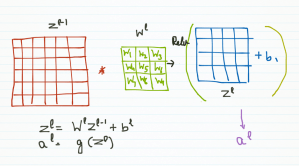 z^{l-1}
W^l
w₁ w₂ w₃
w₄ w₅ w₆
w₇
*
→ Relu ( + b₁ )
z^l
z^l = W^l z^{l-1} + b^l
a^l = g(z^l)
a^l